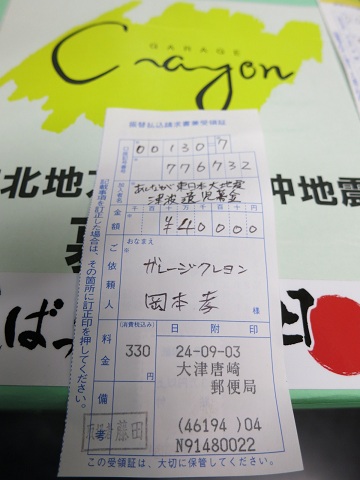 GARAGE
Crayon
北地方
沖地震
振替払込請求書兼受領証
口座記号番号
00130 7
776732
加入者名
あしなが東日本大地震
津波遺児基金
金額
千 百 十 万 千 百 十 円
¥40000
ご依頼人
おなまえ
ガレージクレヨン
岡本孝
様
料金
(消費税込み)
330
円
日附印
24-09-03
大津唐崎
郵便局
(46194 )04
N91480022
備考
藤田
記載事項を訂正した場合は、その箇所に訂正印を押してください。
この受領証は、大切に保管してください。